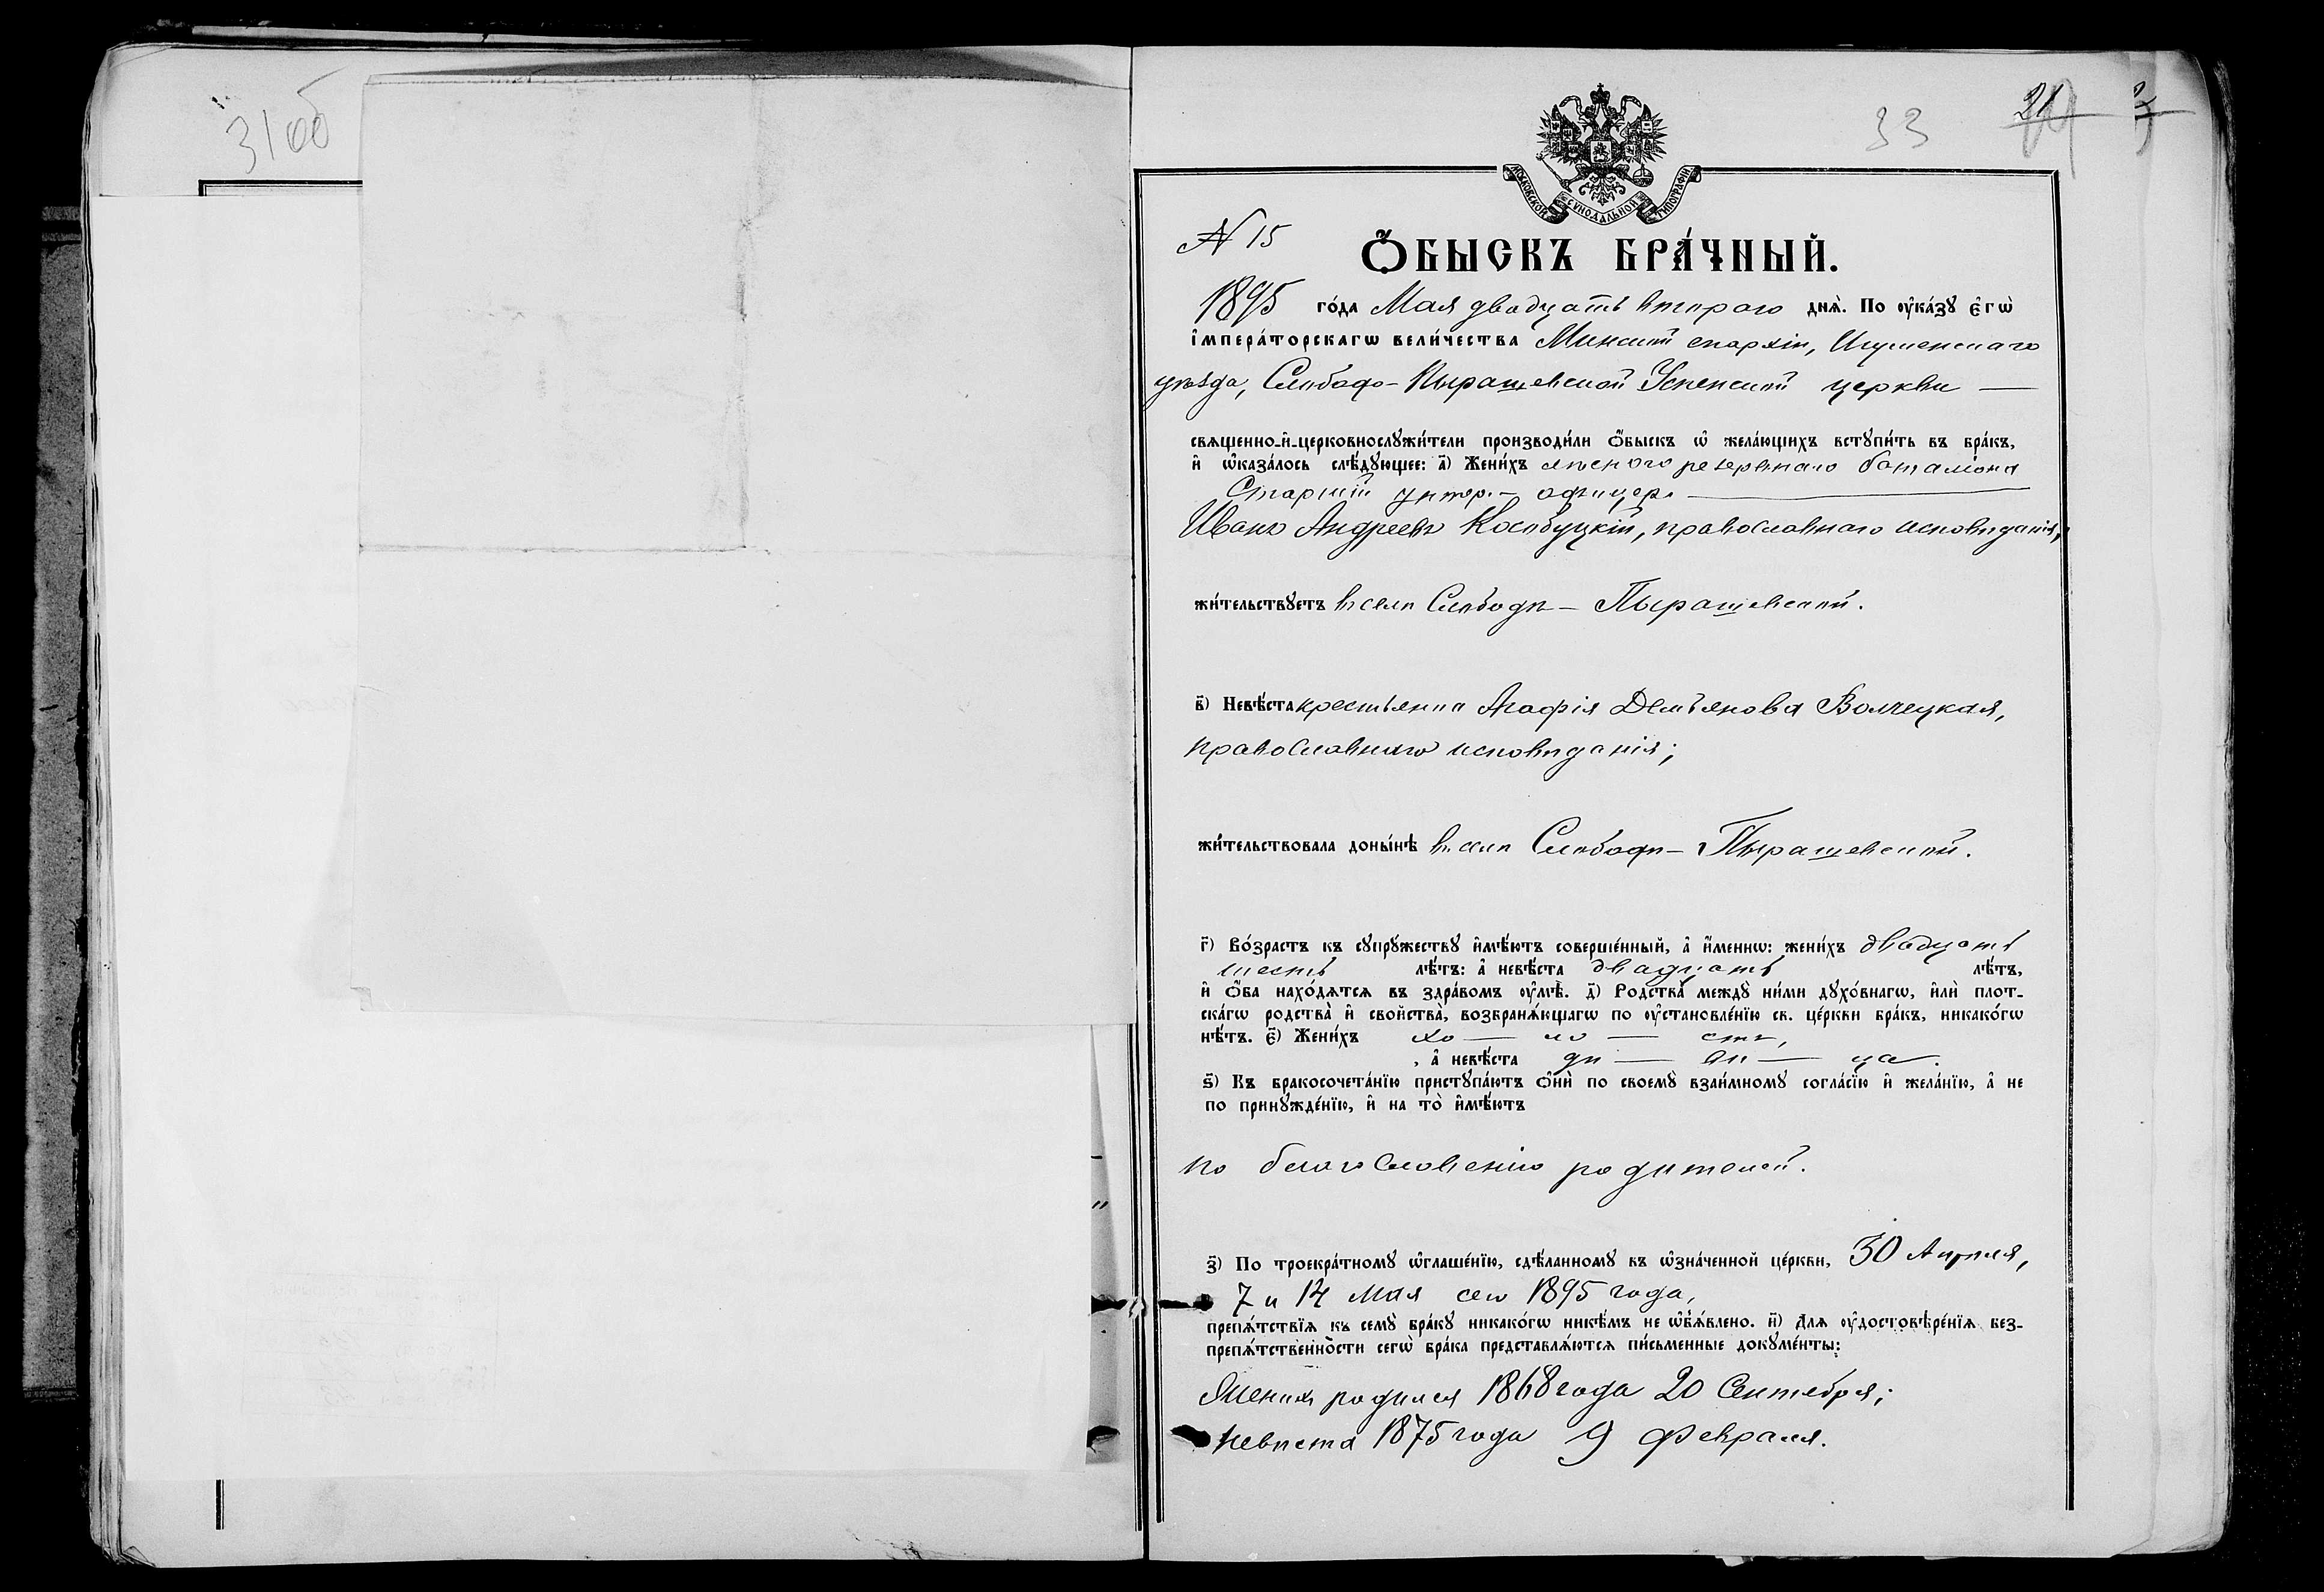 31 об
33
21
МОСКОВСКОЙ СѴНОДАЛЬНОЙ ТИПОГРАФІИ
N 15
Ѻ҆БЫСКЪ БРА́ЧНЫЙ.
1895 го́да Мая двадцать втораго днѧ̀. По ᲂу҆ка́зꙋ є҆гѡ̀
і҆мпера́торскагѡ вели́чества Минской епархіи, Игуменскаго
уѣзда, Слободо-Пырашевской Успенской церкви —
свѧщенно-и҆-церковнослꙋжи́тели производи́ли ѻ҆́быскъ ѡ҆ жела́ющихъ встꙋпи́ть въ бра́къ,
и҆ ѡ҆каза́лось слѣ́дꙋющее: а҃) Жени́хъ резервнаго баталіона
Старшій унтер.- офицеръ
Иванъ Андреевъ Кослбуцкій, православнаго исповѣданія,
жи́тельствꙋетъ въ селѣ Слободѣ - Пырашевской.
в҃) Невѣ́ста крестьянка Агафія Демьянова Волчецкая,
православнаго исповѣданія;
жи́тельствовала доны́нѣ въ селѣ Слободѣ - Пырашевской.
г҃) Во́зрастъ къ сꙋпрꙋ́жествꙋ и҆мѣ́ютъ соверше́нный, а҆ и҆́меннѡ: жени́хъ двадцать
шесть лѣ́тъ: а҆ невѣ́ста двадцать лѣ́тъ,
и҆ ѻ҆́ба нахо́дѧтсѧ въ здра́вомъ ᲂу҆мѣ̀. д҃) Родства̀ междꙋ̀ ни́ми дꙋхо́внагѡ, и҆лѝ плот-
ска́гѡ родства̀ и҆ свойства̀, возбранѧ́ющагѡ по ᲂу҆становле́нїю св. це́ркви бра́къ, никако́гѡ
нѣ́тъ. є҃) Жени́хъ хо — ло — стъ,
, а҆ невѣ́ста дѣ — ви — ца.
ѕ҃) Къ бракосочета́нїю пристꙋпа́ютъ ѻ҆нѝ по своемꙋ̀ взаи́мномꙋ согла́сїю и҆ жела́нїю, а҆ не
по принꙋжде́нїю, и҆ на то̀ и҆мѣ́ютъ
по благословенію родителей.
з҃) По троекра́тномꙋ ѡ҆глаше́нїю, сдѣ́ланномꙋ въ ѡ҆зна́ченной це́ркви, 30 Апрѣля,
7 и 14 Мая сего 1895 года,
препѧ́тствїѧ къ семꙋ̀ бра́кꙋ никако́гѡ никѣ́мъ не ѡ҆б̾ѧ́влено. и҃) Длѧ ᲂу҆достовѣре́нїѧ без-
препѧ́тственности сегѡ̀ бра́ка представлѧ́ютсѧ пи́сьменные докꙋме́нты:
Женихъ родился 1868 года 20 Сентября;
невѣста 1875 года 9 Февраля.